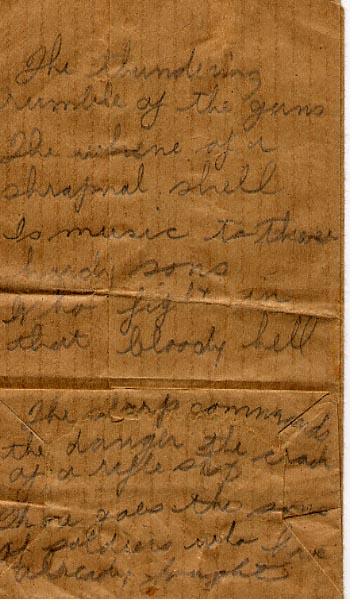 The thundering
rumble of the guns
The whine of a
shrapnal shell
Is music to those
hardy sons
Who fight in
that bloody hell
The sharp command
the danger the crack
of a rifle
goes the
of soldiers who have
already fought